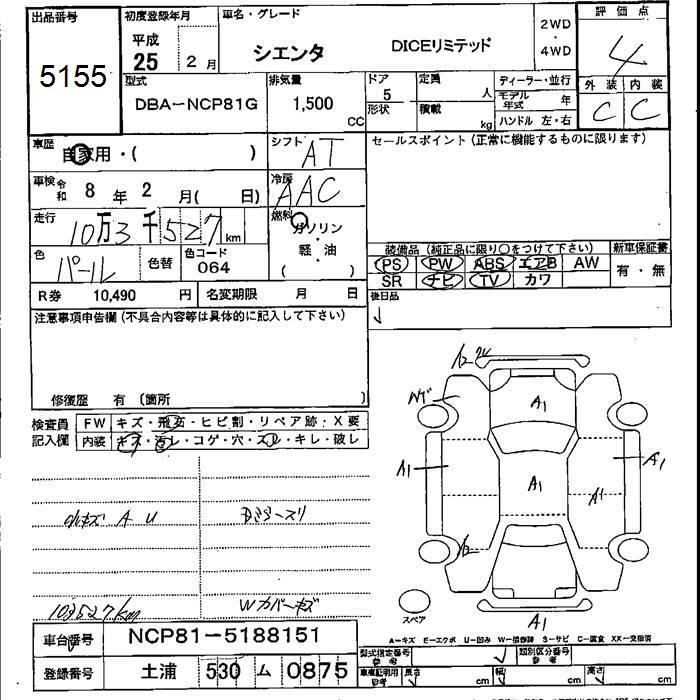 出品番号
5155
初度登録年月
平成
25 2 月
車名・グレード
シエンタ DICEリミテッド
2WD
・
4WD
評価点
4
外装 内装
C C
型式
DBA-NCP81G
排気量
1,500
CC
ドア
5
形状
定員
人
積載
kg
ディーラー・並行
モデル
年式 年
ハンドル 左・右
車歴
自家用・( )
シフト
AT
セールスポイント(正常に機能するものに限ります)
車検 令和 8 年 2 月( 日)
冷房
AAC
走行
10万3千527km
燃料
ガソリン
・
軽・油
( )
色
パール
色替
色コード
064
装備品(純正品に限り○をつけて下さい)
新車保証書
PS PW ABS エアB AW
SR ナビ TV カワ
有・無
R券 10,490 円
名変期限 月 日
後日品
注意事項申告欄(不具合内容等は具体的に記入して下さい)
修復歴 有 (箇所 )
検査員
記入欄
FW キズ・飛石・ヒビ割・リペア跡・X要
内装 キズ・汚レ・コゲ・穴・スレ・キレ・破レ
小キズ A U
103527km
Wカバーキズ
A1
A1
A1
A1
A1
A1
スペア
車台番号 NCP81-5188151
登録番号 土浦 530 ム 0875
A-キズ E-エクボ U-凹み W-補修跡 S-サビ C-腐食 XX-交換済
型式指定番号
参考
類別区分番号
参考
車庫証明用
参考
長さ cm
幅 cm
高さ cm